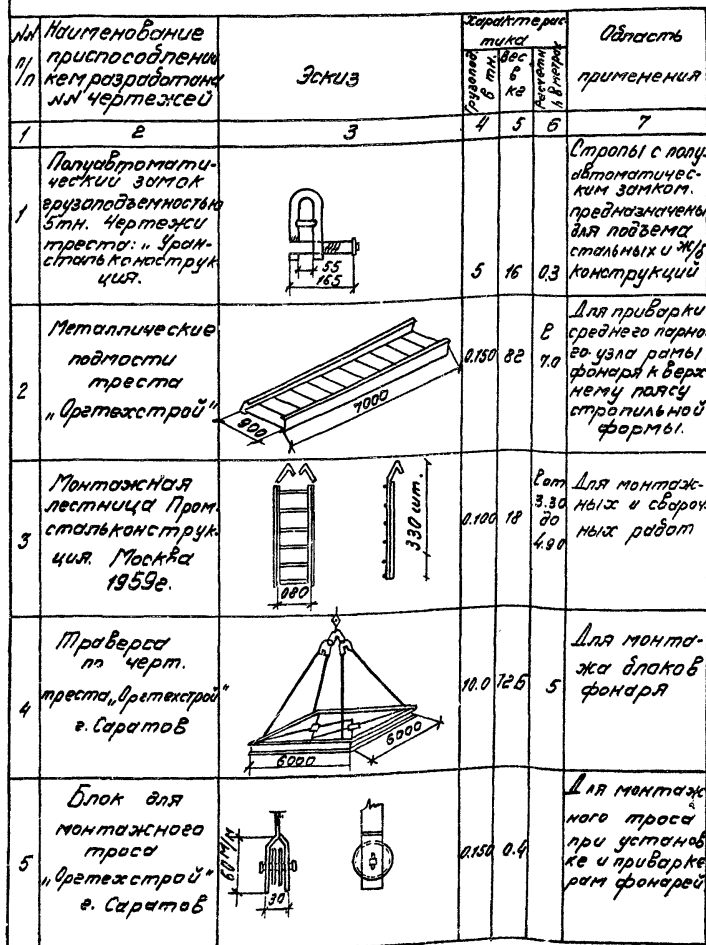 NN п/п
Наименование
приспособлени
кем разработана
NN чертежей
Эскиз
Характерис
тика
Грузопод.
в тн.
Вес
в
кг
Расчетн.
h в метрах
Область
применения
1 2 3 4 5 6 7
1
Полуавтомати-
ческий замок
грузоподъемностью
5тн. Чертежи
треста: „Урал-
стальконструк
ция.
55
165
5 16 0.3
Стропы с полу-
автоматичес-
ким замком.
предназначены
для подъема
стальных и ж/б
конструкций
2
Металлические
подмости
треста
„Оргтехстрой"
900
7000
0.150 82
ℓ
7.0
Для приварки
среднего парно-
го узла рамы
фонаря к верх
нему поясу
стропильной
формы.
3
Монтажная
лестница Пром.
стальконструк-
ция. Москва
1959г.
080
330 шт.
0.100 18
ℓ от
3.30
до
4.90
Для монтаж-
ных и свароч-
ных работ
4
Траверса
по черт.
треста„Оргтехстрой"
г. Саратов
6000
6000
10.0 726 5
Для монта-
жа блаков
фонаря
5
Блок для
монтажного
троса
„Оргтехстрой"
г. Саратов
60 м/м
30
0.150 0.4
Для монтаж
ного троса
при установ
ке и приварке
рам фонарей